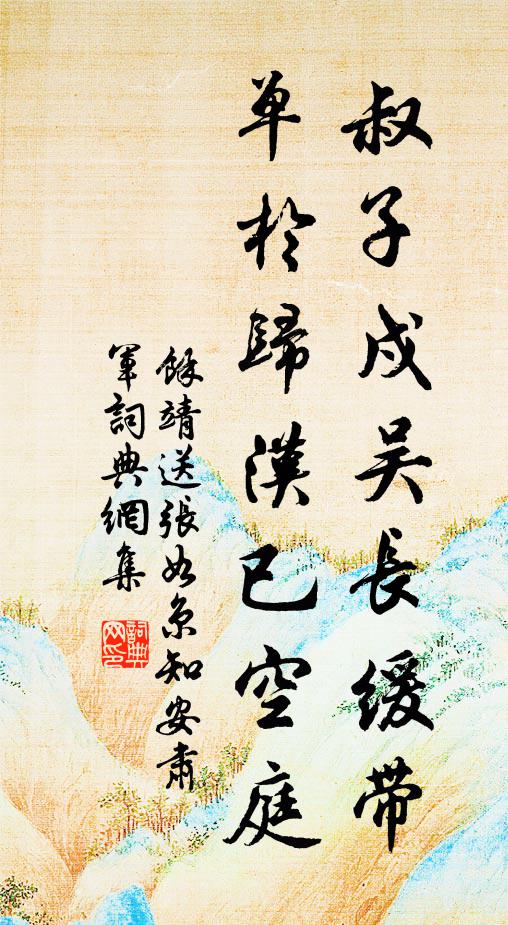 叔子戍吴長緩带
单於歸漢已空庭
餘靖送張如京知安肅
軍詞典網集
詞典
网印